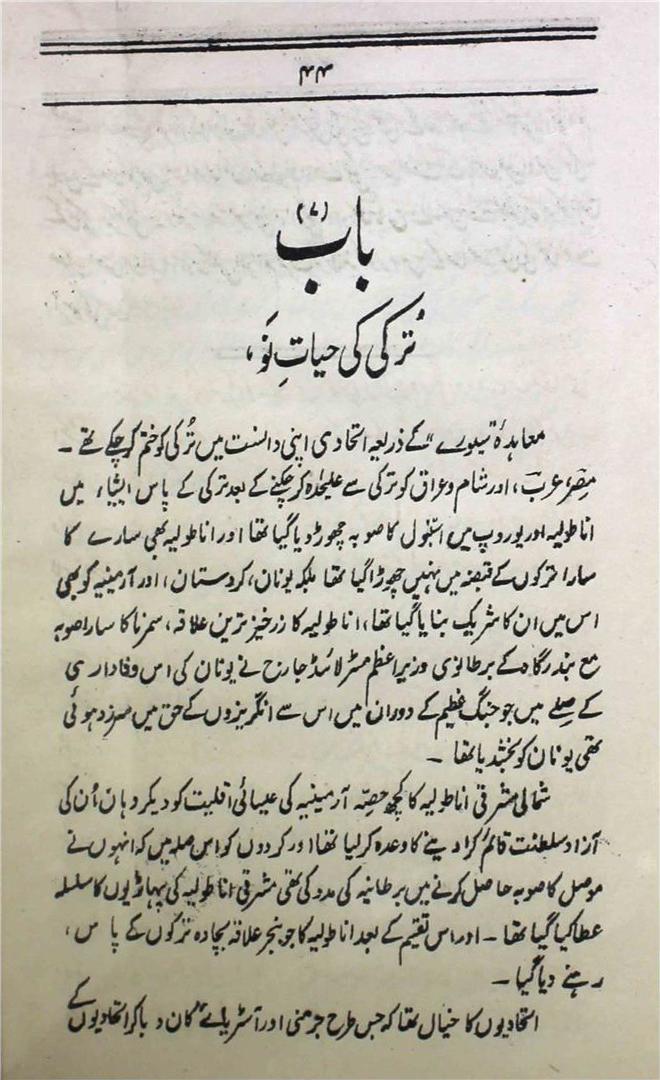 ۴۴
باب
(۷)
تُرکی کی حیاتِ نَو،
معاہدۂ سیورے“ کے ذریعہ اتحادی اپنی دانست میں تُرکی کو ختم کر چکے تھے ۔
مصر، عرب، اور شام و عراق کو ترکی سے علیحٰدہ کر چکنے کے بعد ترکی کے پاس ایشیاء میں
اناطولیہ اور یوروپ میں استنبول کا صوبہ چھوڑ دیا گیا تھا اور اناطولیہ بھی سارے کا
سارا ترکوں کے قبضہ میں نہیں چھوڑا گیا تھا بلکہ یونان، کردستان، اور آرمینیہ کو بھی
اس میں ان کا شریک بنایا گیا تھا، اناطولیہ کا زرخیز ترین علاقہ، سمرنا کا سارا صوبہ
مع بندرگاہ کے برطانوی وزیر اعظم مسٹر لائڈ جارج نے یونان کی اس وفاداری
کے صلے میں جو جنگِ عظیم کے دوران میں اس سے انگریزوں کے حق میں سرزد ہوئی
تھی یونان کو بخشدیا تھا ۔
شمالی مشرقی اناطولیہ کا کچھ حصّہ آرمینیہ کی عیسائی اقلیت کو دیکر وہاں اُن کی
آزاد سلطنت قائم کرا دینے کا وعدہ کر لیا تھا اور کردوں کو اس صلہ میں کہ انہوں نے
موصل کا صوبہ حاصل کرنے میں برطانیہ کی مدد کی تھی مشرقی اناطولیہ کی پہاڑیوں کا سلسلہ
عطا کیا گیا تھا ۔ اور اس تقسیم کے بعد اناطولیہ کا جو بنجر علاقہ بچا وہ ترکوں کے پاس،
رہنے دیا گیا ۔
اتحادیوں کا خیال تھا کہ جس طرح جرمنی اور آسٹریا نے کان دبا کر اتحادیوں کے